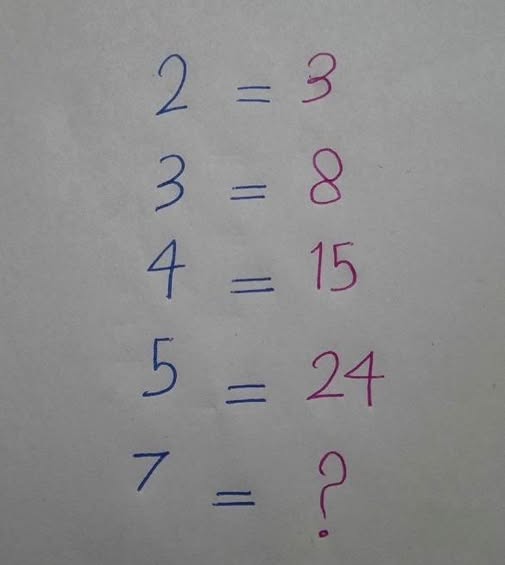 2 = 3
3 = 8
4 = 15
5 = 24
7 = ?